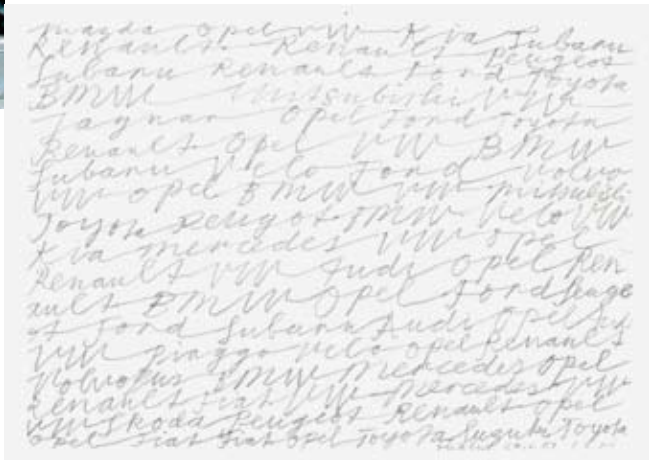 mazda Opel VW Kia Subaru
Renault Renault Peugeos
Subaru Renault Ford Toyota
BMW Mitsubishi VW
Jaguar Opel Ford Toyota
Renault Opel VW BMW
Subaru Velo Ford Volvo
VW Opel BMW VW
Toyota Peugos BMW Velo VW
Kia mercedes VW Opel
Renault VW Audi Opel Ren
ault BMW Opel Ford Peuge
ot Ford Subaru Audi Opel
VW Piaggo Velo Opel Renault
Volvo BMW Mercedes Opel
Renault Fiat VW Mercedes VW
VW Skoda Peugeos Renault Opel
Opel Fiat Fiat Opel Toyota Suzuki Toyota